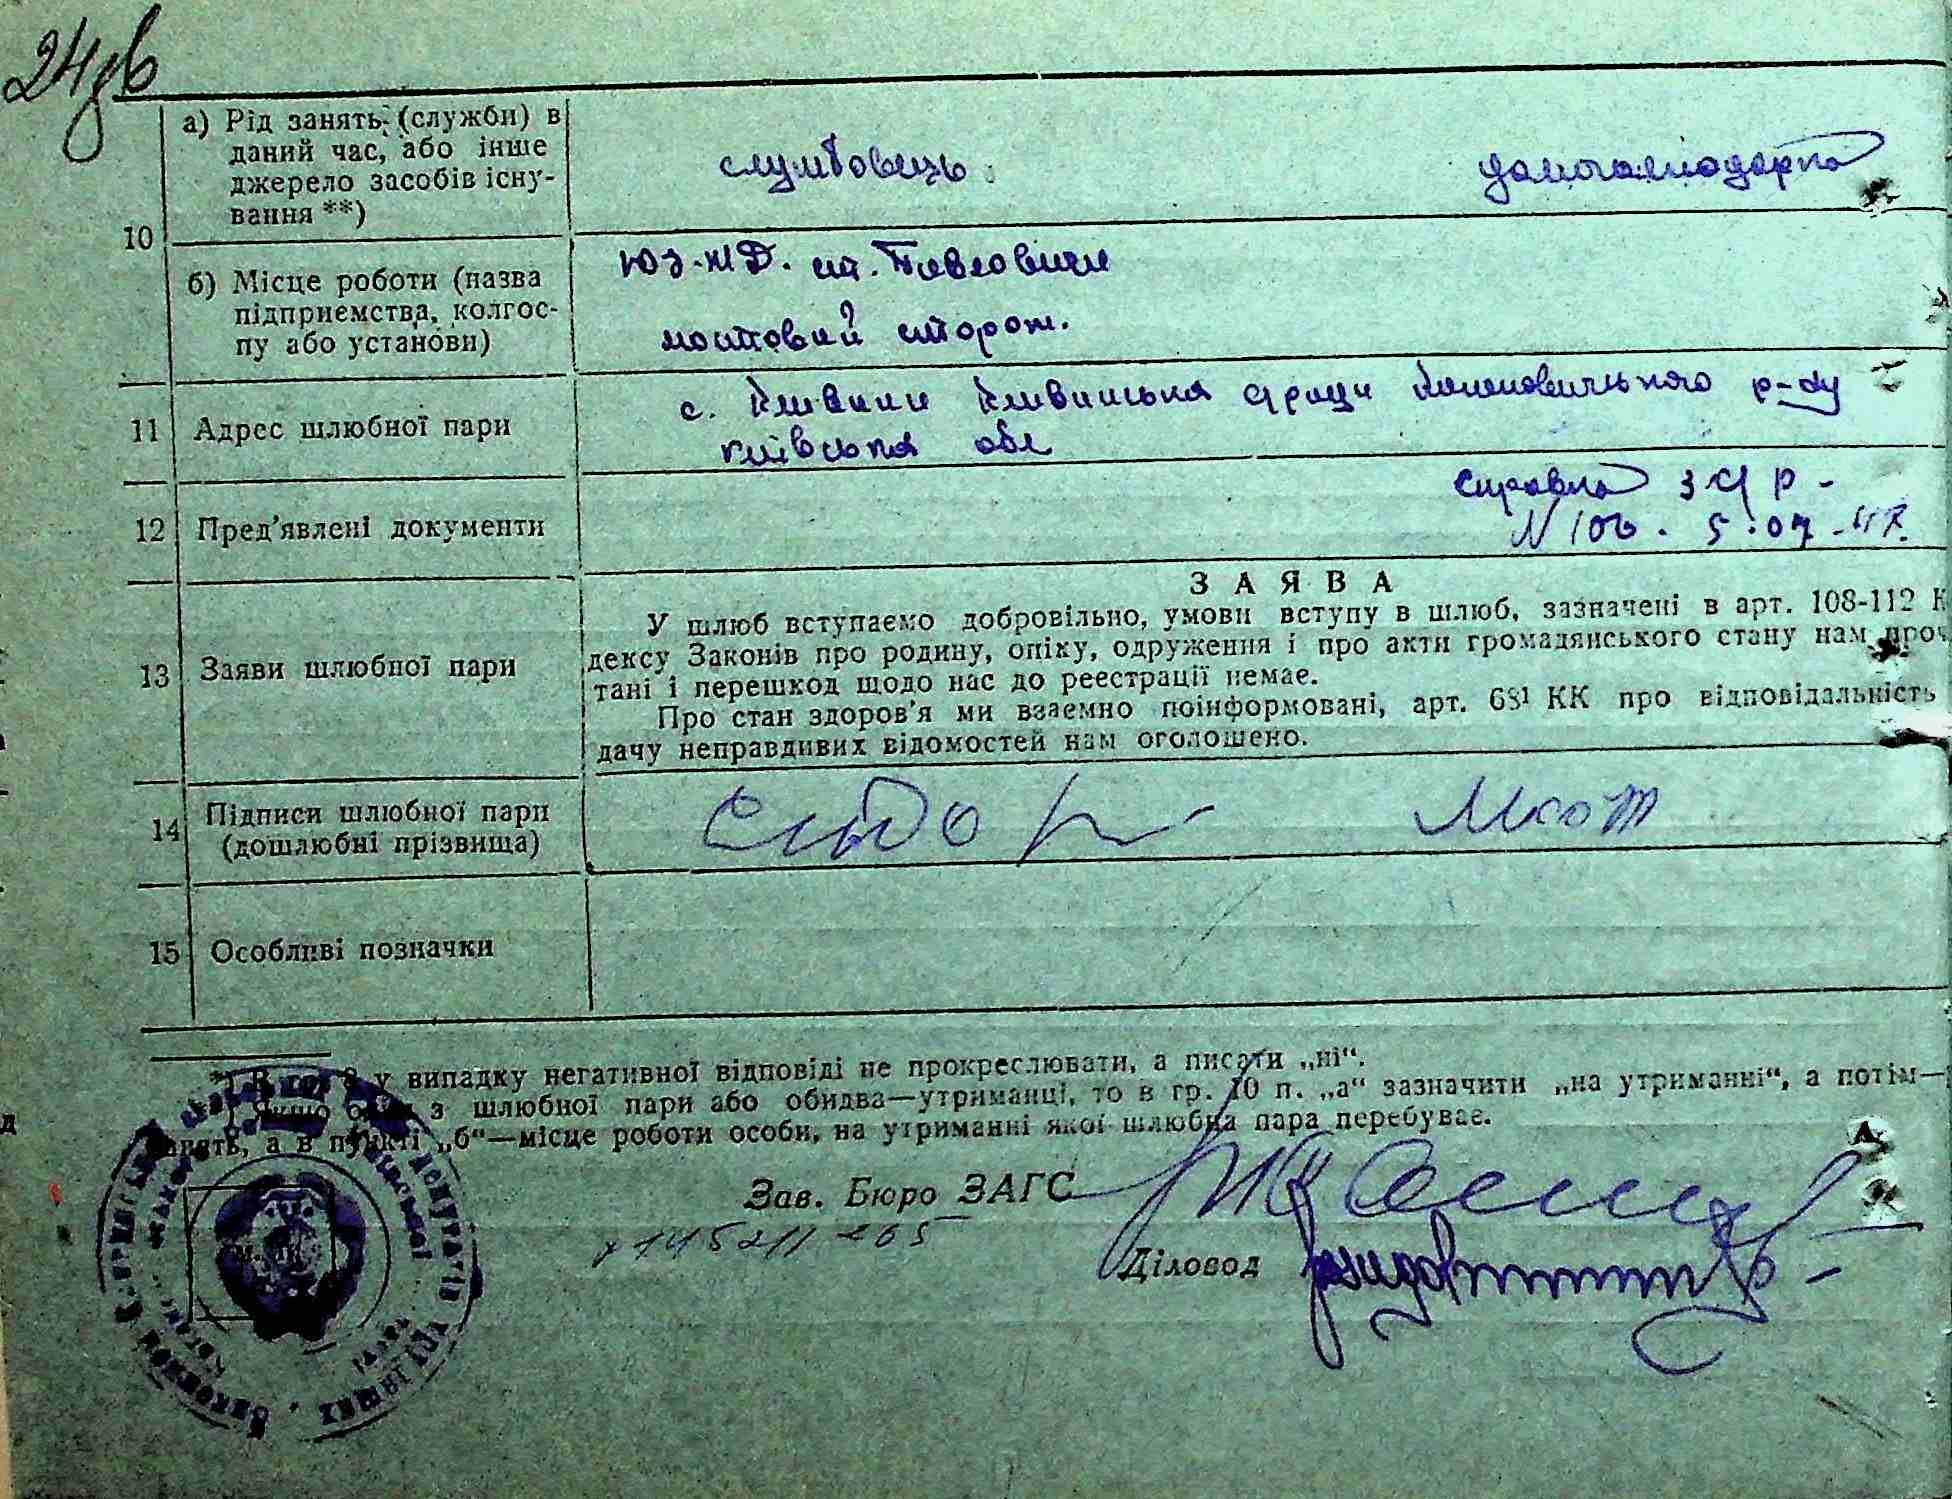 24зв
а) Рід занять (служби) в
даний час, або інше
джерело засобів існу-
вання **)
службовець
домогосподарка
10
б) Місце роботи (назва
підприємства, колгос-
пу або установи)
ЮЗ.ЖД. ст.
мостовий сторож.
11 Адрес шлюбної пари
с. р-ну
Київська обл
12 Пред'явлені документи
Справка з С/Р -
N 100. 5.07.
13 Заяви шлюбної пари
ЗАЯВА
У шлюб вступаємо добровільно, умови вступу в шлюб, зазначені в арт. 108-112 К
дексу Законів про родину, опіку, одруження і про акти громадянського стану нам проч
тані і перешкод щодо нас до реєстрації немає.
Про стан здоров'я ми взаємно поінформовані, арт. 68¹ КК про відповідальність
дачу неправдивих відомостей нам оголошено.
14 Підписи шлюбної пари
(дошлюбні прізвища)
15 Особливі позначки
у випадку негативної відповіді не прокреслювати, а писати „ні“.
Якщо з шлюбної пари або обидва—утриманці, то в гр. 10 п. „а“ зазначити „на утриманні“, а потім—
а в пункті „б“—місце роботи особи, на утриманні якої шлюбна пара перебуває.
Зав. Бюро ЗАГС
Діловод